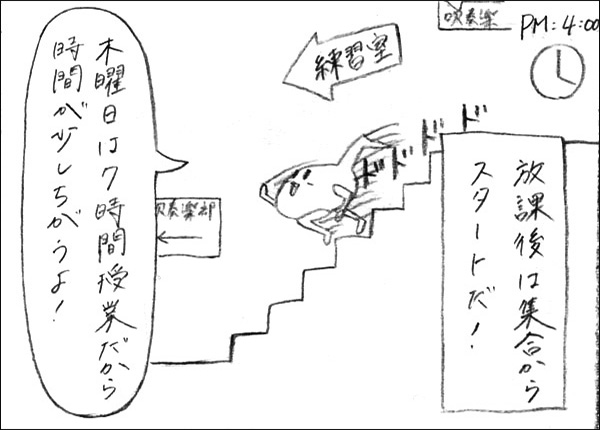 吹奏楽
PM:4:00
練習室
放課後は集合から
スタートだ!
ドドドド
吹奏楽部
木曜日は7時間授業だから
時間が少しちがうよ!